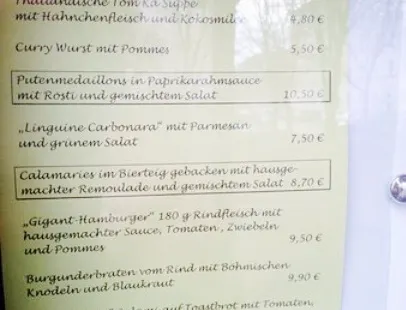 Thailändische Tom Ka Suppe
mit Hähnchenfleisch und Kokosmilch 4,80 €
Curry Wurst mit Pommes 5,50 €
Putenmedaillons in Paprikarahmsauce
mit Rösti und gemischtem Salat 10,50 €
„Linguine Carbonara“ mit Parmesan
und grünem Salat 7,50 €
Calamaries im Bierteig gebacken mit hausge-
machter Remoulade und gemischtem Salat 8,70 €
„Gigant-Hamburger“ 180 g Rindfleisch mit
hausgemachter Sauce, Tomaten, Zwiebeln
und Pommes 9,50 €
Burgunderbraten vom Rind mit Böhmischen
Knödeln und Blaukraut 9,90 €
auf Toastbrot mit Tomaten,